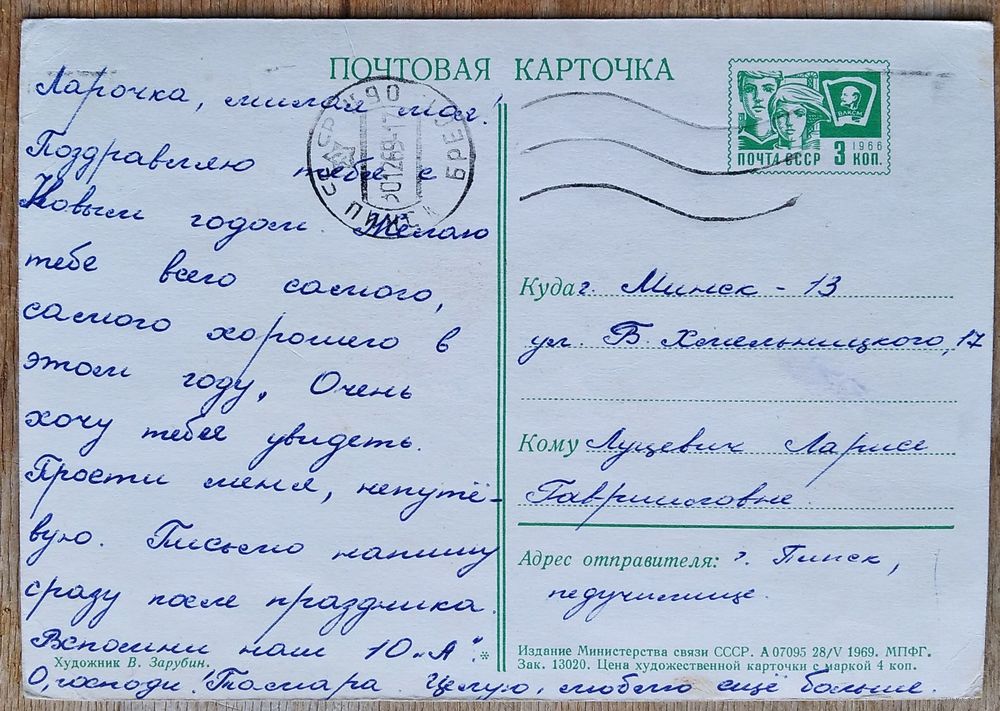 ПОЧТОВАЯ КАРТОЧКА
Ларочка, милая моя!
Поздравляю тебя с
Новым годом. Желаю
тебе всего самого,
самого хорошего в
этом году. Очень
хочу тебя увидеть.
Прости меня, непутё-
вую. Письмо напишу
сразу после праздника.
Вспомни наш 10 "А".
О, господи! Тамара. Целую, люблю ещё больше.
Художник В. Зарубин.
ПИНСК
БРЕСТ
ОБ
301269-17
ВЛКСМ
1966
ПОЧТА СССР 3 КОП.
Куда г. Минск - 13
ул. Б. Хмельницкого, 17
Кому Луцевич Ларисе
Гаврииловне
Адрес отправителя: г. Пинск,
педучилище.
Издание Министерства связи СССР. А 07095 28/V 1969. МПФГ.
Зак. 13020. Цена художественной карточки с маркой 4 коп.